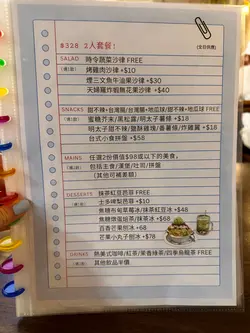 $328 2人套餐!
(全日供應)
SALAD 時令蔬菜沙律 FREE
(選1款) 烤雞肉沙律 +$10
煙三文魚牛油果沙律 +$30
天婦羅炸蝦無花果沙律 +$40
SNACKS 甜不辣+台灣腸/台式腸+地瓜球/甜不辣+地瓜球 FREE
(選1款) 蜜糖芥末/黑松露/明太子薯條 +$18
明太子甜不辣/鹽酥雞塊/香薯條/炸雞翼 +$18
台式小食拼盤 +$58
MAINS 任選2份價值$98或以下的美食。
(選2款) 包括主食/漢堡/吐司/拼盤
(其他可補差額)
DESSERTS 抹茶紅豆西多 FREE
(選1款) 士多啤梨西多 +$10
焦糖布甸草莓冰/抹茶紅豆冰 +$48
焦糖燉蛋撻/抹茶冰 +$68
百香芒果刨冰 +$68
芒果小丸子刨冰 +$78
DRINKS 熱美式咖啡/紅茶/茉香綠茶/四季烏龍茶 FREE
(選2款) 其他飲品半價